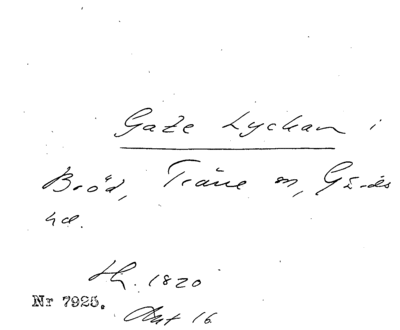 Gate Lyckan i
Bröd, Träne sn, Gärds
hd.
Hf. 1820
Nr 7925. Akt 16